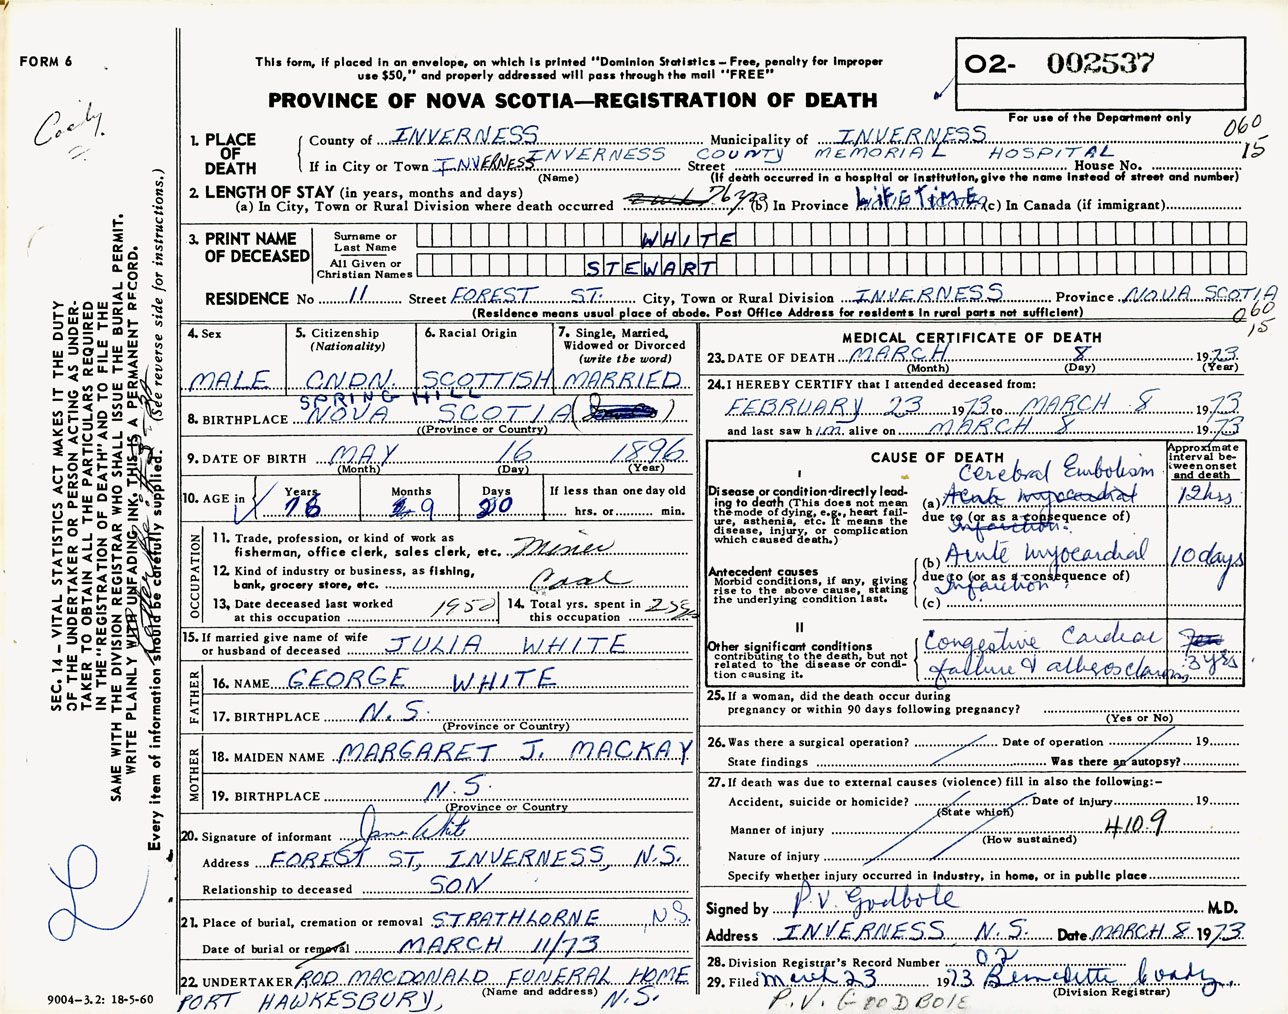 FORM 6
Coady
This form, if placed in an envelope, on which is printed "Dominion Statistics – Free, penalty for improper
use $50," and properly addressed will pass through the mail "FREE"
PROVINCE OF NOVA SCOTIA—REGISTRATION OF DEATH
02- 002537
For use of the Department only
060
15
1. PLACE OF DEATH
County of INVERNESS Municipality of INVERNESS
If in City or Town INVERNESS INVERNESS COUNTY MEMORIAL HOSPITAL Street House No.
(Name) (If death occurred in a hospital or institution, give the name instead of street and number)
2. LENGTH OF STAY (in years, months and days)
(a) In City, Town or Rural Division where death occurred 76 yrs (b) In Province Lifetime (c) In Canada (if immigrant)
3. PRINT NAME OF DECEASED
Surname or Last Name WHITE
All Given or Christian Names STEWART
RESIDENCE No 11 Street FOREST ST. City, Town or Rural Division INVERNESS Province NOVA SCOTIA
(Residence means usual place of abode. Post Office Address for residents in rural parts not sufficient)
060
15
4. Sex MALE
5. Citizenship (Nationality) CNDN.
6. Racial Origin SCOTTISH
7. Single, Married, Widowed or Divorced (write the word) MARRIED
SPRING HILL
8. BIRTHPLACE NOVA SCOTIA
((Province or Country)
9. DATE OF BIRTH MAY 16 1896
(Month) (Day) (Year)
10. AGE in Years 76 Months 9 Days 20 If less than one day old hrs. or min.
OCCUPATION
11. Trade, profession, or kind of work as fisherman, office clerk, sales clerk, etc. Miner
12. Kind of industry or business, as fishing, bank, grocery store, etc. Coal
13. Date deceased last worked at this occupation 1950
14. Total yrs. spent in this occupation
15. If married give name of wife or husband of deceased JULIA WHITE
FATHER
16. NAME GEORGE WHITE
17. BIRTHPLACE N.S.
(Province or Country)
MOTHER
18. MAIDEN NAME MARGARET J. MACKAY
19. BIRTHPLACE N.S.
(Province or Country
20. Signature of informant White
Address FOREST ST, INVERNESS, N.S.
Relationship to deceased SON
21. Place of burial, cremation or removal STRATHLORNE, N.S.
Date of burial or removal MARCH 11/73
22. UNDERTAKER ROD MACDONALD FUNERAL HOME
(Name and address)
PORT HAWKESBURY, N.S.
MEDICAL CERTIFICATE OF DEATH
23. DATE OF DEATH MARCH 8 1973
(Month) (Day) (Year)
24. I HEREBY CERTIFY that I attended deceased from:
FEBRUARY 23 1973 to MARCH 8 1973
and last saw him alive on MARCH 8 1973
CAUSE OF DEATH
Approximate interval between onset and death
I
Disease or condition directly leading to death (This does not mean the mode of dying, e.g., heart failure, asthenia, etc. It means the disease, injury, or complication which caused death.)
Cerebral Embolism
(a) Acute myocardial 12 hrs
due to (or as a consequence of)
Infarction.
Antecedent causes
Morbid conditions, if any, giving rise to the above cause, stating the underlying condition last.
(b) Acute myocardial 10 days
due to (or as a consequence of)
Infarction
(c)
II
Other significant conditions
contributing to the death, but not related to the disease or condition causing it.
Congestive Cardiac
failure & 3 yrs
25. If a woman, did the death occur during
pregnancy or within 90 days following pregnancy?
(Yes or No)
26. Was there a surgical operation? Date of operation 19
State findings Was there an autopsy?
27. If death was due to external causes (violence) fill in also the following:–
Accident, suicide or homicide? Date of injury 19
(State which)
Manner of injury 410.9
(How sustained)
Nature of injury
Specify whether injury occurred in industry, in home, or in public place
Signed by P.V. Godbole M.D.
Address INVERNESS N.S. Date MARCH 8 1973
28. Division Registrar's Record Number 02
29. Filed March 23 1973 Bernadette Coady
(Division Registrar)
P.V. GODBOLE
SEC. 14 – VITAL STATISTICS ACT MAKES IT THE DUTY
OF THE UNDERTAKER OR PERSON ACTING AS UNDER-
TAKER TO OBTAIN ALL THE PARTICULARS REQUIRED
IN THE "REGISTRATION OF DEATH" AND TO FILE THE
SAME WITH THE DIVISION REGISTRAR WHO SHALL ISSUE THE BURIAL PERMIT.
WRITE PLAINLY WITH UNFADING INK, THIS IS A PERMANENT RECORD.
Every item of information should be carefully supplied. (See reverse side for instructions.)
9004–3.2: 18-5-60